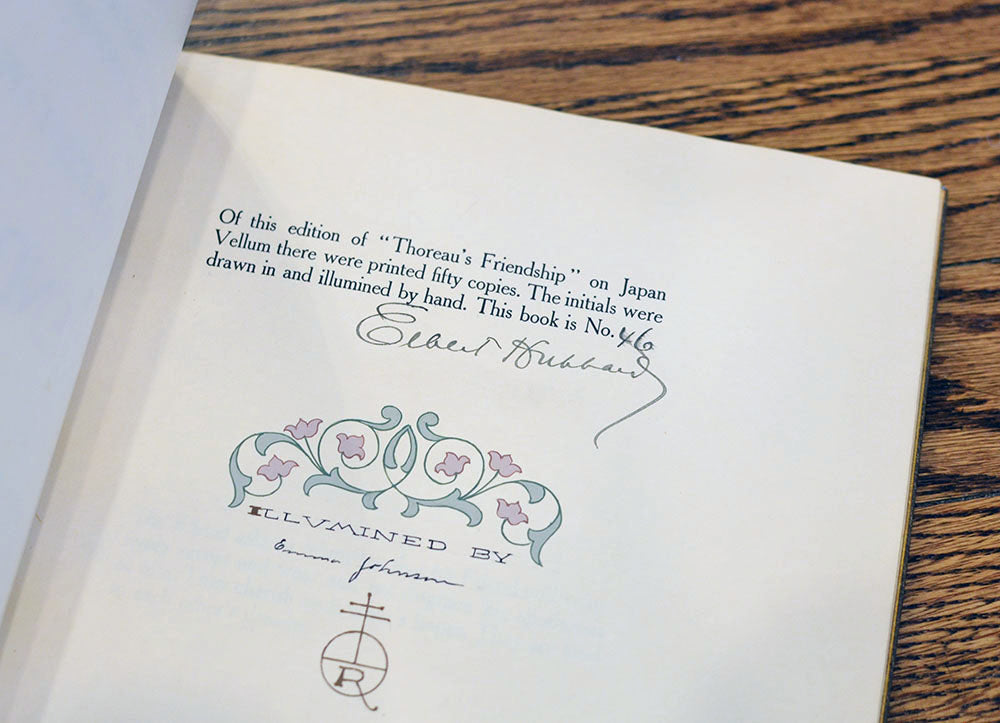 Of this edition of "Thoreau's Friendship" on Japan
Vellum there were printed fifty copies. The initials were
drawn in and illumined by hand. This book is No. 46
Elbert Hubbard
ILLVMINED BY
Emma Johnson
R